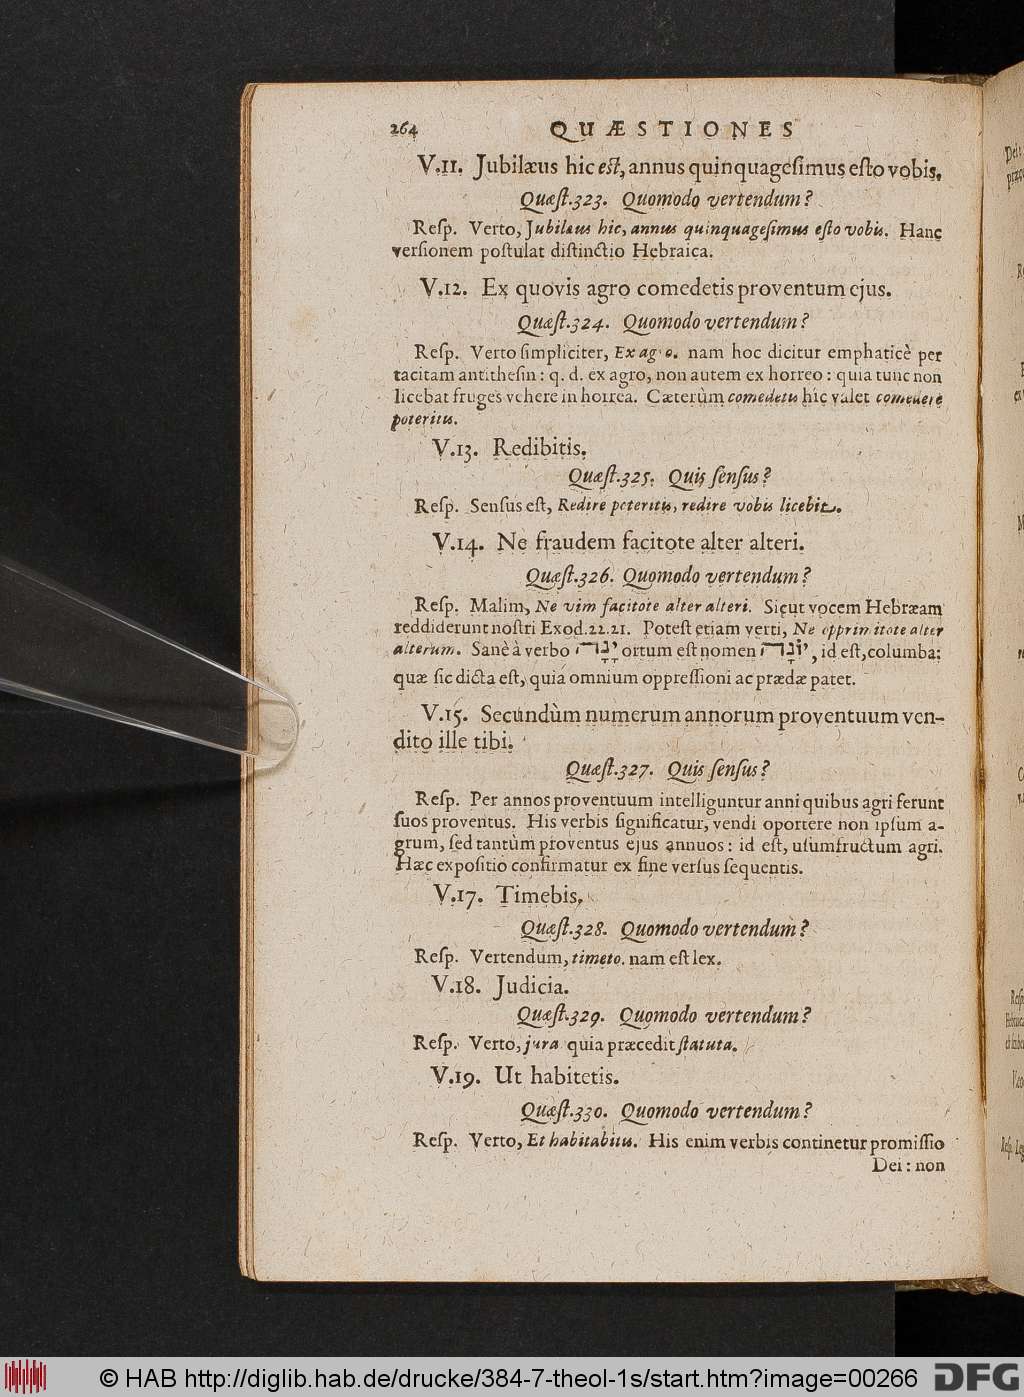 264 QUÆSTIONES
V.11. Jubilæus hic est, annus quinquagesimus esto vobis.
Quæst.323. Quomodo vertendum?
Resp. Verto, Jubilæus hic, annus quinquagesimus esto vobis. Hanc
versionem postulat distinctio Hebraica.
V.12. Ex quovis agro comedetis proventum ejus.
Quæst.324. Quomodo vertendum?
Resp. Verto simpliciter, Ex agro. nam hoc dicitur emphaticè per
tacitam antithesin: q. d. ex agro, non autem ex horreo: quia tunc non
licebat fruges vehere in horrea. Cæterùm comedetis hic valet comedere
poteritis.
V.13. Redibitis.
Quæst.325. Quis sensus?
Resp. Sensus est, Redire poteritis, redire vobis licebit.
V.14. Ne fraudem facitote alter alteri.
Quæst.326. Quomodo vertendum?
Resp. Malim, Ne vim facitote alter alteri. Sicut vocem Hebræam
reddiderunt nostri Exod.22.21. Potest etiam verti, Ne opprimitote alter
alterum. Sanè à verbo יָנָה ortum est nomen יוֹנָה, id est, columba:
quæ sic dicta est, quia omnium oppressioni ac prædæ patet.
V.15. Secundùm numerum annorum proventuum ven-
dito ille tibi.
Quæst.327. Quis sensus?
Resp. Per annos proventuum intelliguntur anni quibus agri ferunt
suos proventus. His verbis significatur, vendi oportere non ipsum a-
grum, sed tantùm proventus ejus annuos: id est, usumfructum agri.
Hæc expositio confirmatur ex fine versus sequentis.
V.17. Timebis.
Quæst.328. Quomodo vertendum?
Resp. Vertendum, timeto. nam est lex.
V.18. Judicia.
Quæst.329. Quomodo vertendum?
Resp. Verto, jura quia præcedit statuta.
V.19. Ut habitetis.
Quæst.330. Quomodo vertendum?
Resp. Verto, Et habitabitis. His enim verbis continetur promissio
Dei: non
© HAB http://diglib.hab.de/drucke/384-7-theol-1s/start.htm?image=00266
DFG